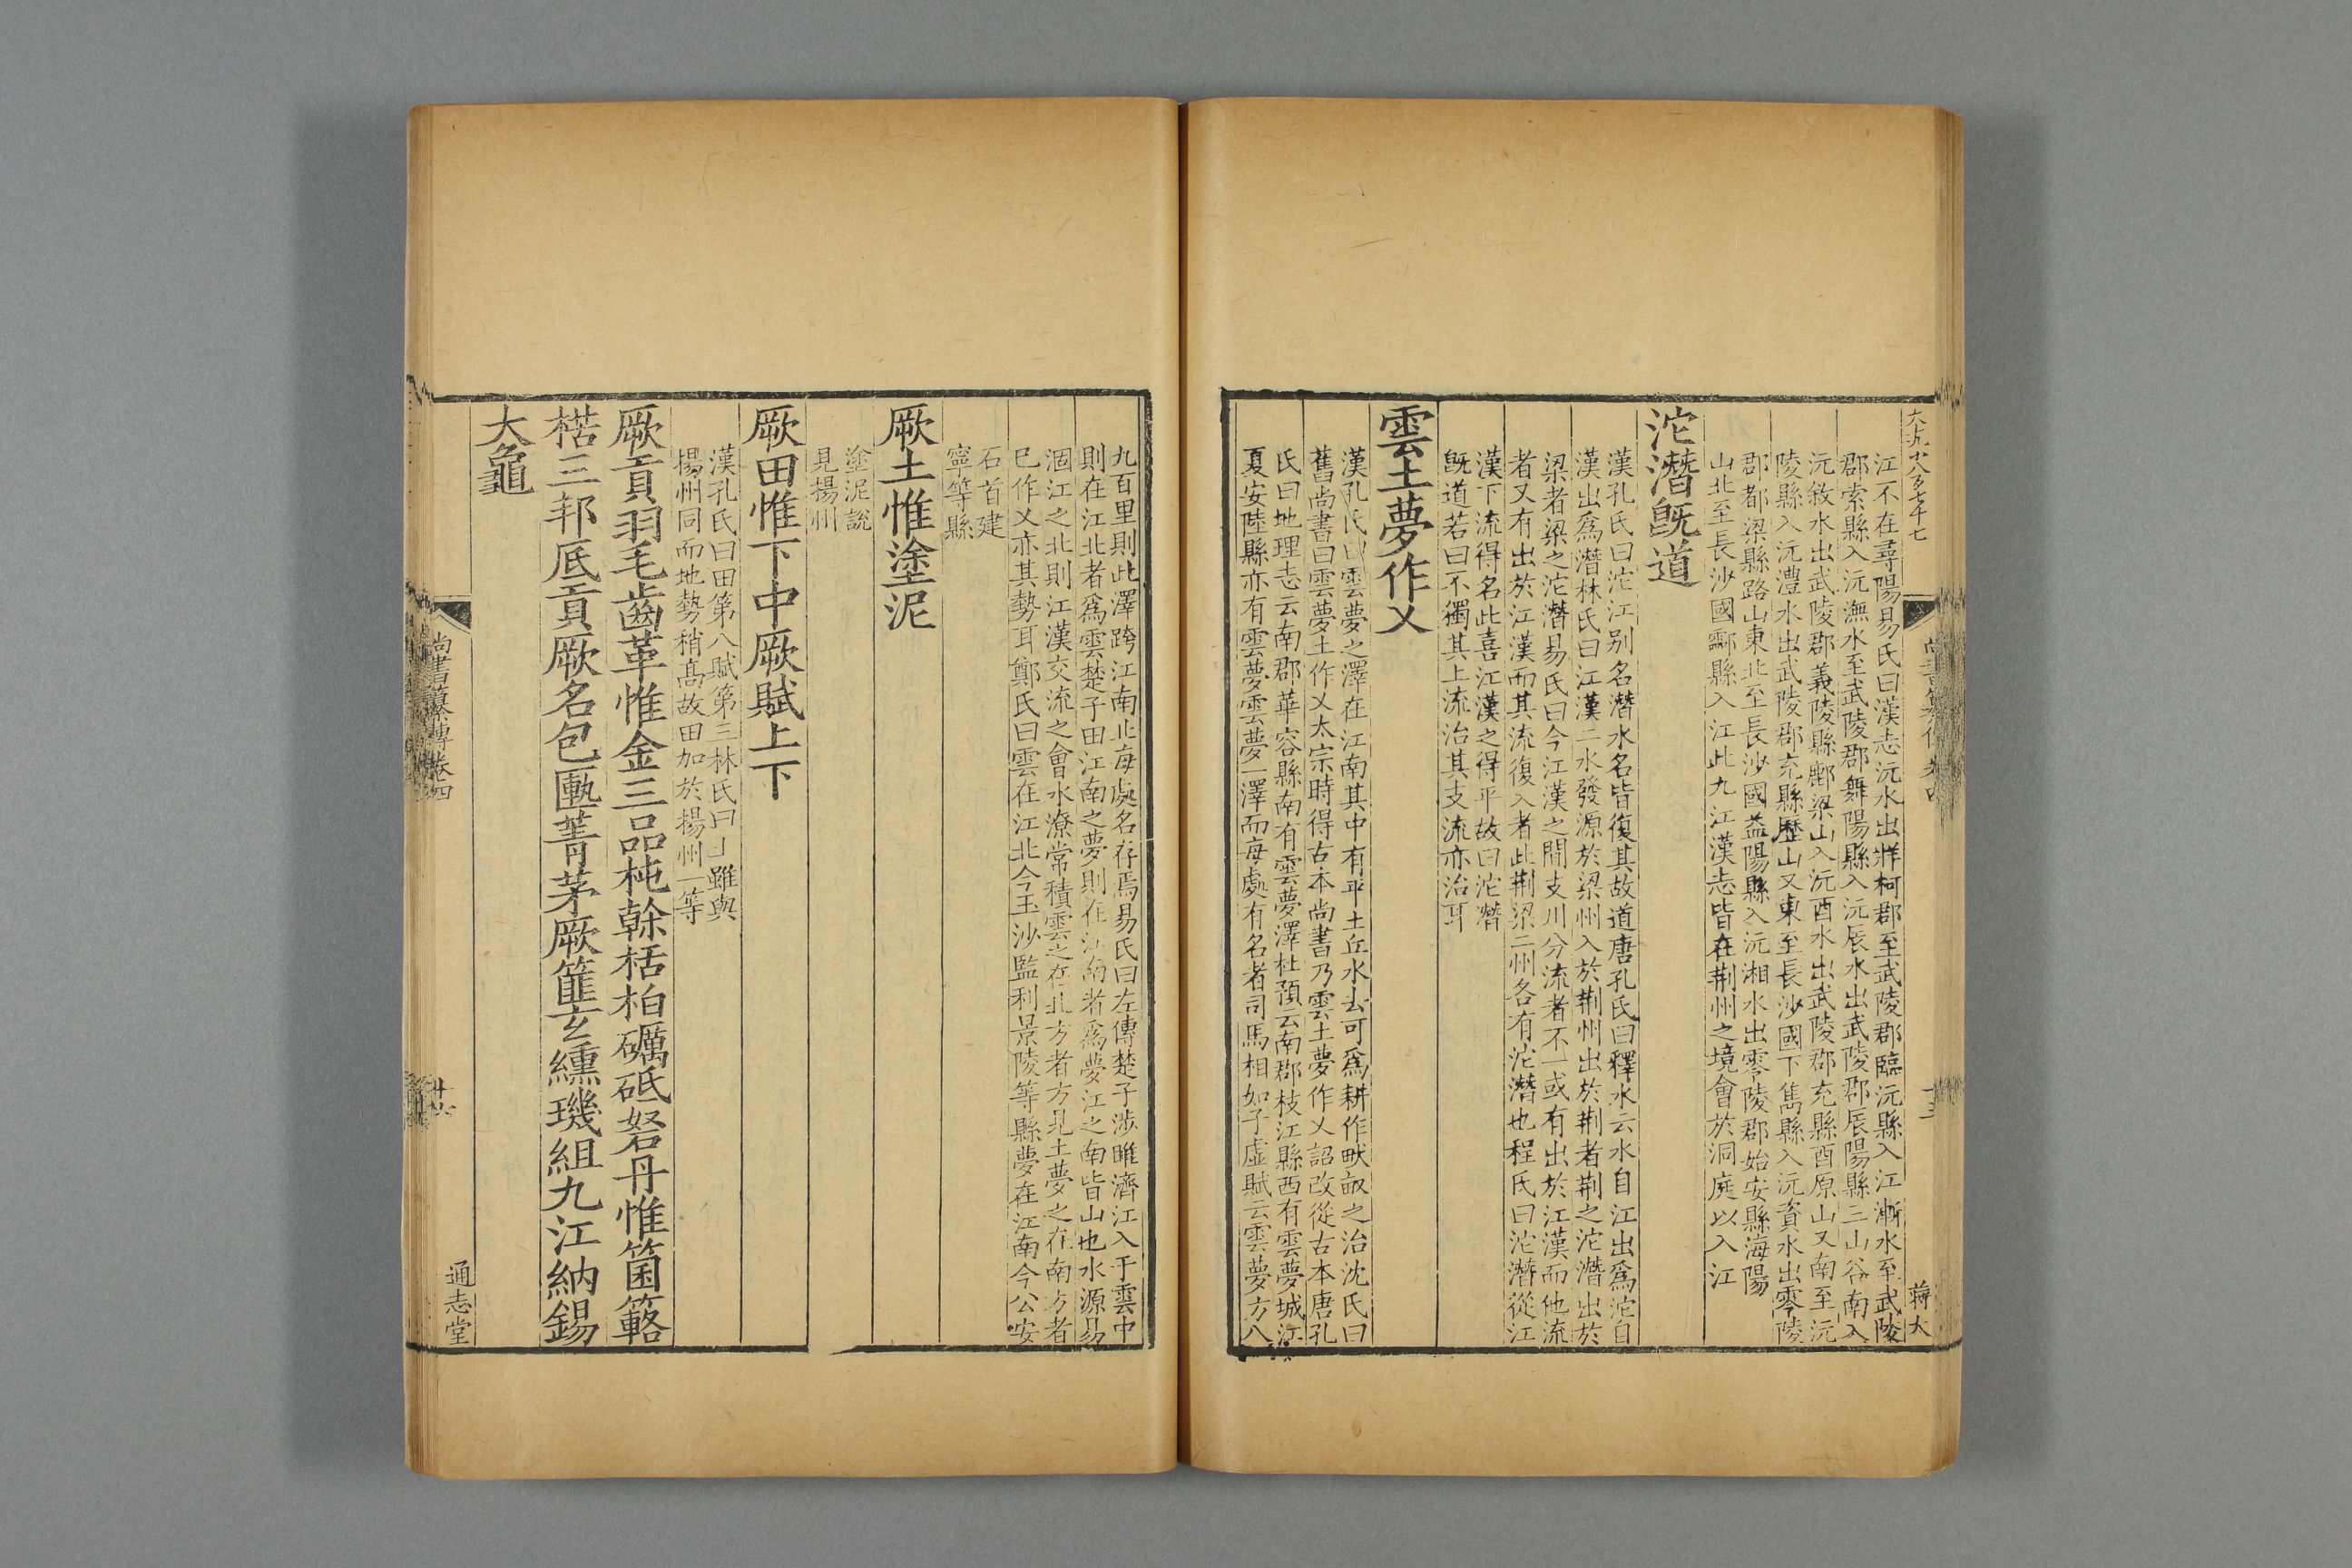 大九小八百七十七
江不在尋陽易氏曰漢志沅水出牂柯郡至武陵郡臨沅縣入江漸水至武陵
郡索縣入沅潕水至武陵郡舞陽縣入沅辰水出武陵郡辰陽縣三山谷南入
沅敘水出武陵郡義陵縣鄜梁山入沅酉水出武陵郡充縣酉原山又南至沅
陵縣入沅澧水出武陵郡充縣歷山又東至長沙國下雋縣入沅資水出零陵
郡都梁縣路山東北至長沙國益陽縣入沅湘水出零陵郡始安縣海陽
山北至長沙國酃縣入江此九江漢志皆在荆州之境會於洞庭以入江
沱潛旣道
漢孔氏曰沱江别名潛水名皆復其故道唐孔氏曰釋水云水自江出爲沱自
漢出爲潛林氏曰江漢二水發源於梁州入於荆州出於荆者荆之沱潛出於
梁者梁之沱潛易氏曰今江漢之間支川分流者不一或有出於江漢而他流
者又有出於江漢而其流復入者此荆梁二州各有沱潛也程氏曰沱潛從江
漢下流得名此喜江漢之得平故曰沱潛
旣道若曰不獨其上流治其支流亦治耳
雲土夢作乂
漢孔氏曰雲夢之澤在江南其中有平土丘水去可爲耕作畎畝之治沈氏曰
舊尚書曰雲夢土作乂太宗時得古本尚書乃雲土夢作乂詔改從古本唐孔
氏曰地理志云南郡華容縣南有雲夢澤杜預云南郡枝江縣西有雲夢城江
夏安陸縣亦有雲夢雲夢一澤而每處有名者司馬相如子虛賦云雲夢方八
蔣太
九百里則此澤跨江南北每處名存焉易氏曰左傳楚子涉睢濟江入于雲中
則在江北者爲雲楚子田江南之夢則在江南者爲夢江之南皆山也水源易
涸江之北則江漢交流之會水潦常積雲之在北方者方見土夢之在南方者
已作乂亦其勢耳鄭氏曰雲在江北今玉沙監利景陵等縣夢在江南今公安
石首建
寧等縣
厥土惟塗泥
塗泥說
見揚州
厥田惟下中厥賦上下
漢孔氏曰田第八賦第三林氏曰土雖與
揚州同而地勢稍高故田加於揚州一等
厥貢羽毛齒革惟金三品杶榦栝柏礪砥砮丹惟箘簵
楛三邦厎貢厥名包匭菁茅厥篚玄纁璣組九江納錫
大龜
尚書纂傳卷四
廿六
通志堂